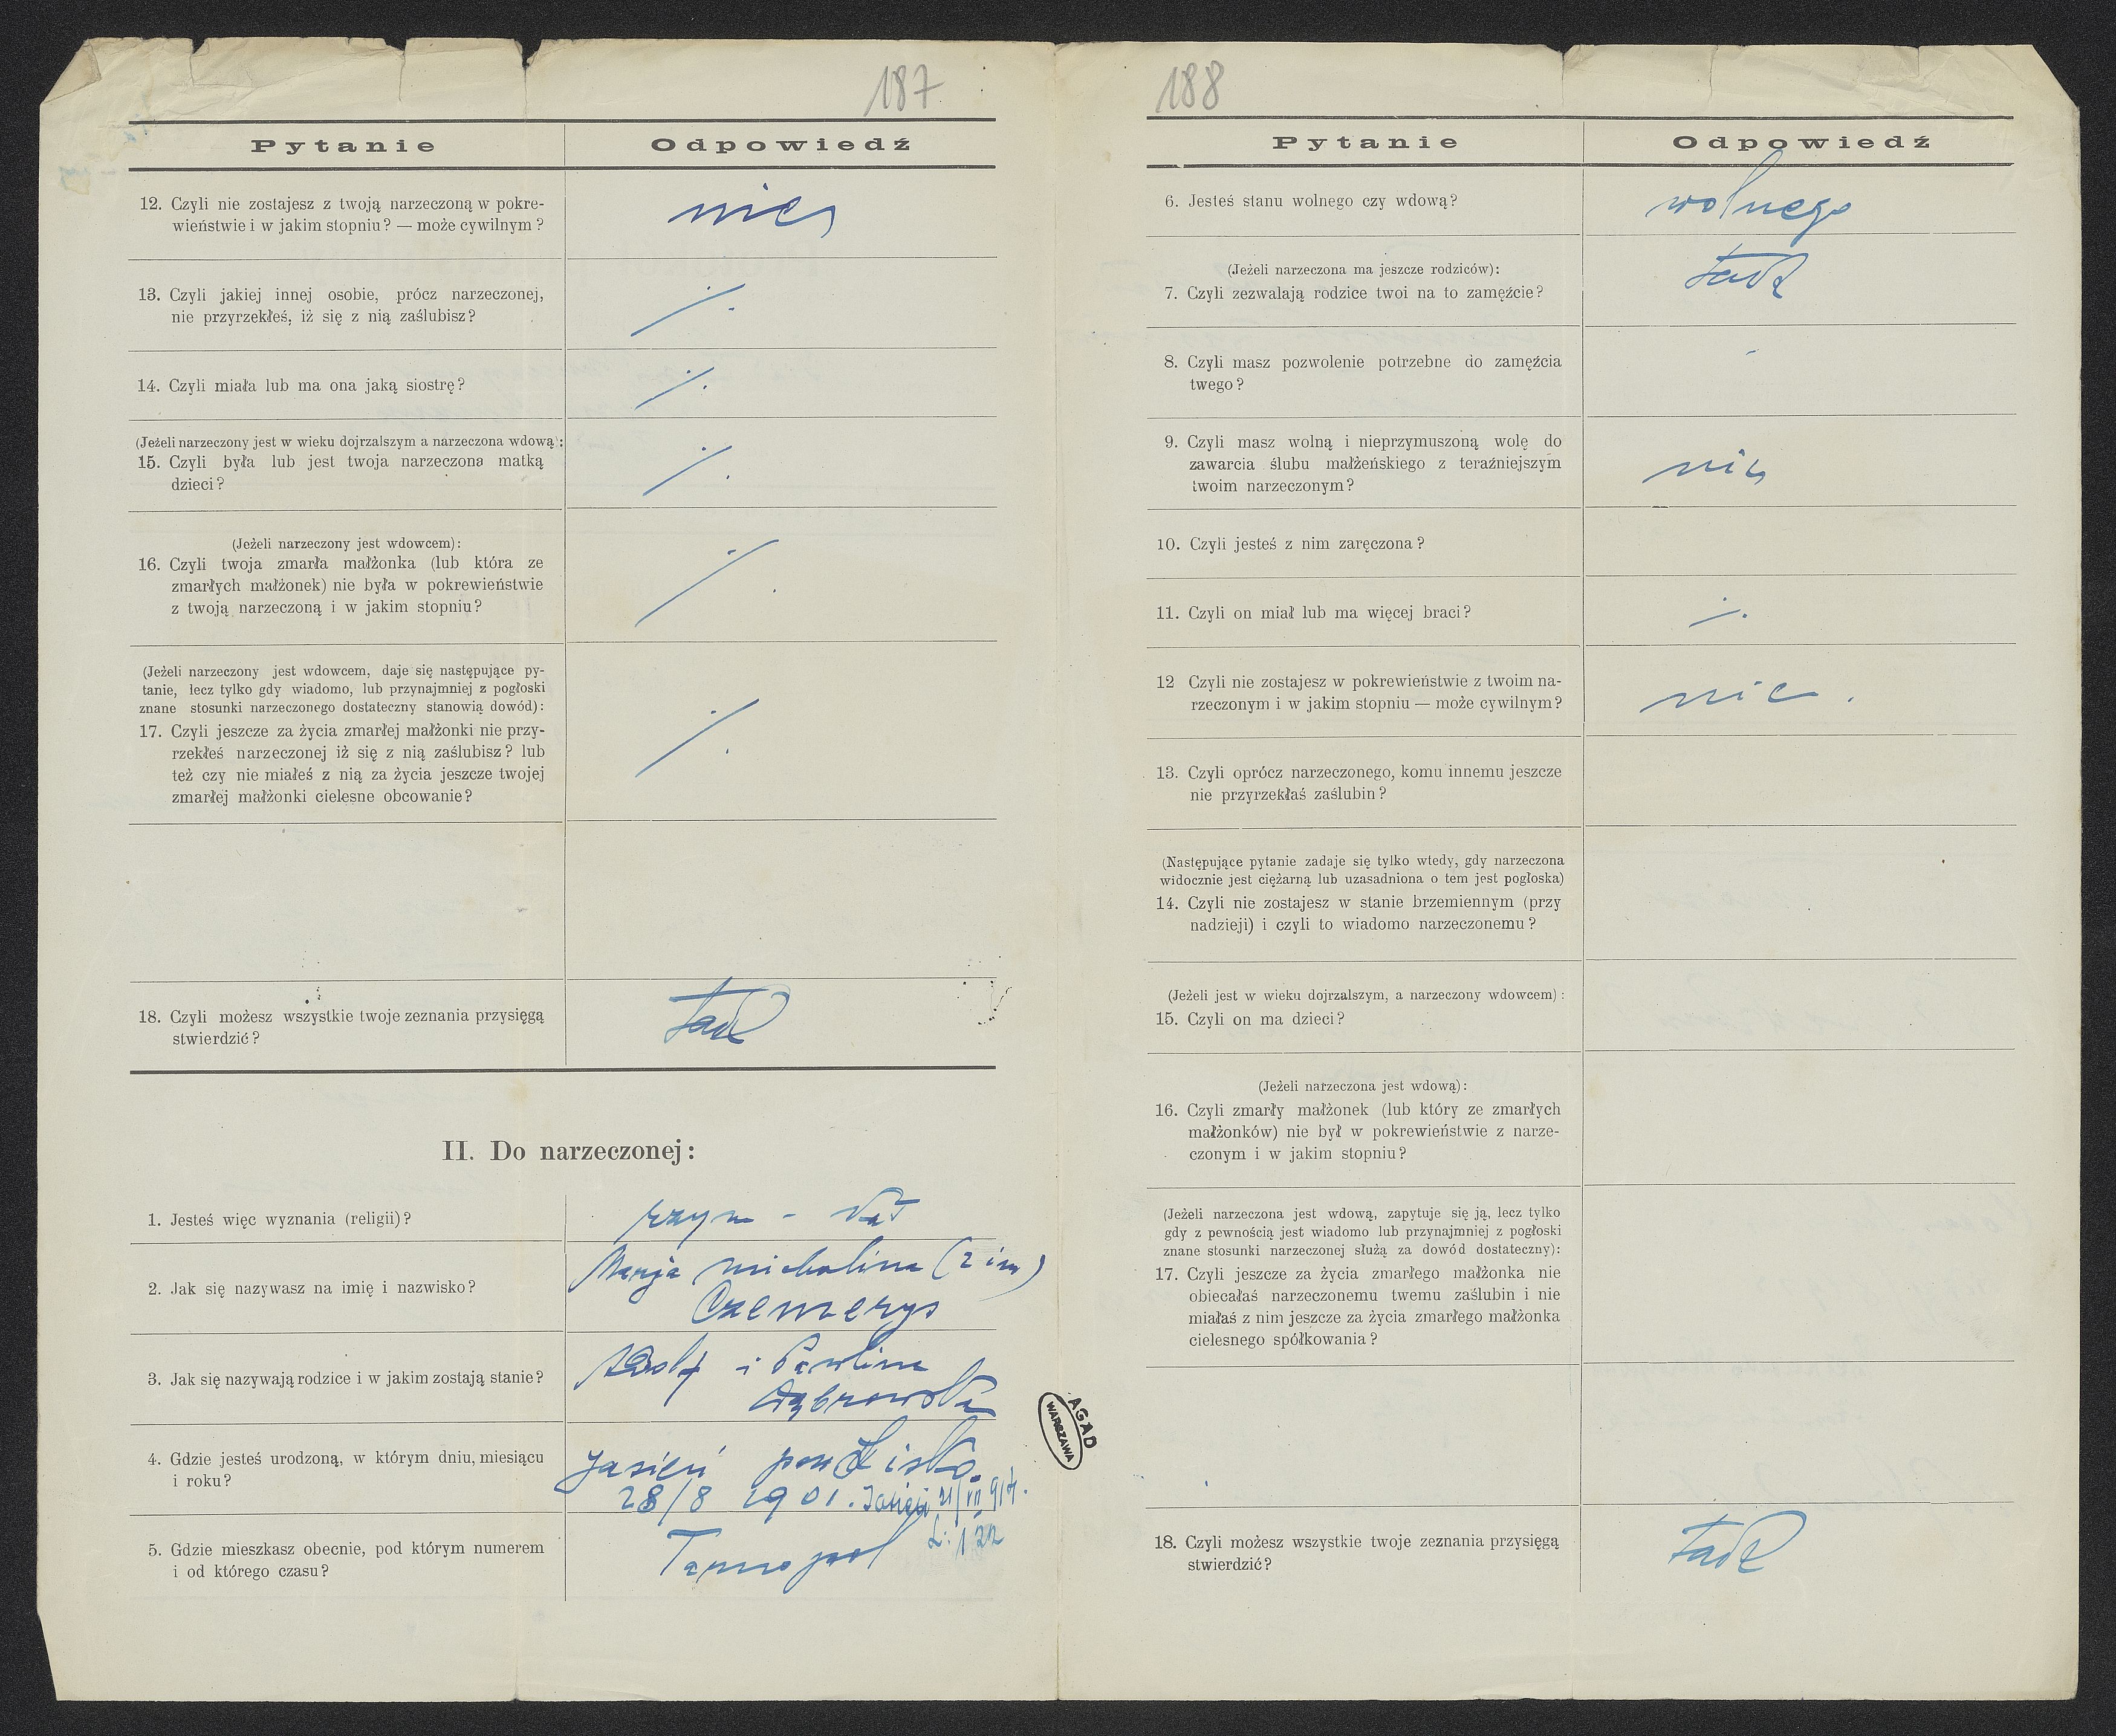 187
Pytanie
Odpowiedź
12. Czyli nie zostajesz z twoją narzeczoną w pokre-
wieństwie i w jakim stopniu? — może cywilnym?
nic
13. Czyli jakiej innej osobie, prócz narzeczonej,
nie przyrzekłeś, iż się z nią zaślubisz?
·/.
14. Czyli miała lub ma ona jaką siostrę?
·/.
(Jeżeli narzeczony jest w wieku dojrzalszym a narzeczona wdową):
15. Czyli była lub jest twoja narzeczona matką
dzieci?
·/.
(Jeżeli narzeczony jest wdowcem):
16. Czyli twoja zmarła małżonka (lub która ze
zmarłych małżonek) nie była w pokrewieństwie
z twoją narzeczoną i w jakim stopniu?
·/.
(Jeżeli narzeczony jest wdowcem, daje się następujące py-
tanie, lecz tylko gdy wiadomo, lub przynajmniej z pogłoski
znane stosunki narzeczonego dostateczny stanowią dowód):
17. Czyli jeszcze za życia zmarłej małżonki nie przy-
rzekłeś narzeczonej iż się z nią zaślubisz? lub
też czy nie miałeś z nią za życia jeszcze twojej
zmarłej małżonki cielesne obcowanie?
·/.
18. Czyli możesz wszystkie twoje zeznania przysięgą
stwierdzić?
tak
II. Do narzeczonej:
1. Jesteś więc wyznania (religii)?
rzym - kat
2. Jak się nazywasz na imię i nazwisko?
Marja Michalina (2 im)
Czemerys
3. Jak się nazywają rodzice i w jakim zostają stanie?
Adolf i Paulina
Dąbrowska
4. Gdzie jesteś urodzoną, w którym dniu, miesiącu
i roku?
Jasień pow Lisko.
28/8 1901. Jasień 21/VII 917.
L: 122
5. Gdzie mieszkasz obecnie, pod którym numerem
i od którego czasu?
Tarnopol
AGAD
WARSZAWA
188
Pytanie
Odpowiedź
6. Jesteś stanu wolnego czy wdową?
wolnego
(Jeżeli narzeczona ma jeszcze rodziców):
7. Czyli zezwalają rodzice twoi na to zamęźcie?
tak
8. Czyli masz pozwolenie potrzebne do zamęźcia
twego?
9. Czyli masz wolną i nieprzymuszoną wolę do
zawarcia ślubu małżeńskiego z teraźniejszym
twoim narzeczonym?
nic
10. Czyli jesteś z nim zaręczona?
11. Czyli on miał lub ma więcej braci?
·/.
12 Czyli nie zostajesz w pokrewieństwie z twoim na-
rzeczonym i w jakim stopniu — może cywilnym?
nic.
13. Czyli oprócz narzeczonego, komu innemu jeszcze
nie przyrzekłaś zaślubin?
(Następujące pytanie zadaje się tylko wtedy, gdy narzeczona
widocznie jest ciężarną lub uzasadniona o tem jest pogłoska)
14. Czyli nie zostajesz w stanie brzemiennym (przy
nadzieji) i czyli to wiadomo narzeczonemu?
(Jeżeli jest w wieku dojrzalszym, a narzeczony wdowcem):
15. Czyli on ma dzieci?
(Jeżeli narzeczona jest wdową):
16. Czyli zmarły małżonek (lub który ze zmarłych
małżonków) nie był w pokrewieństwie z narze-
czonym i w jakim stopniu?
(Jeżeli narzeczona jest wdową, zapytuje się ją, lecz tylko
gdy z pewnością jest wiadomo lub przynajmniej z pogłoski
znane stosunki narzeczonej służą za dowód dostateczny):
17. Czyli jeszcze za życia zmarłego małżonka nie
obiecałaś narzeczonemu twemu zaślubin i nie
miałaś z nim jeszcze za życia zmarłego małżonka
cielesnego spółkowania?
18. Czyli możesz wszystkie twoje zeznania przysięgą
stwierdzić?
tak